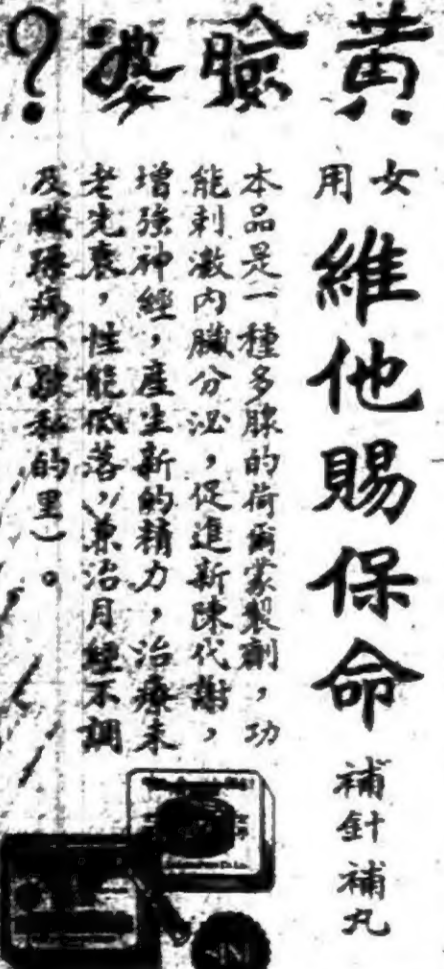 黃臉婆?
女用
維他賜保命
補針補丸
本品是一種多腺的荷爾蒙製劑,功
能刺激內臟分泌,促進新陳代謝,
增強神經,產生新的精力,治療未
老先衰,性能低落,兼治月經不調
及臟躁病(歇私的里)。